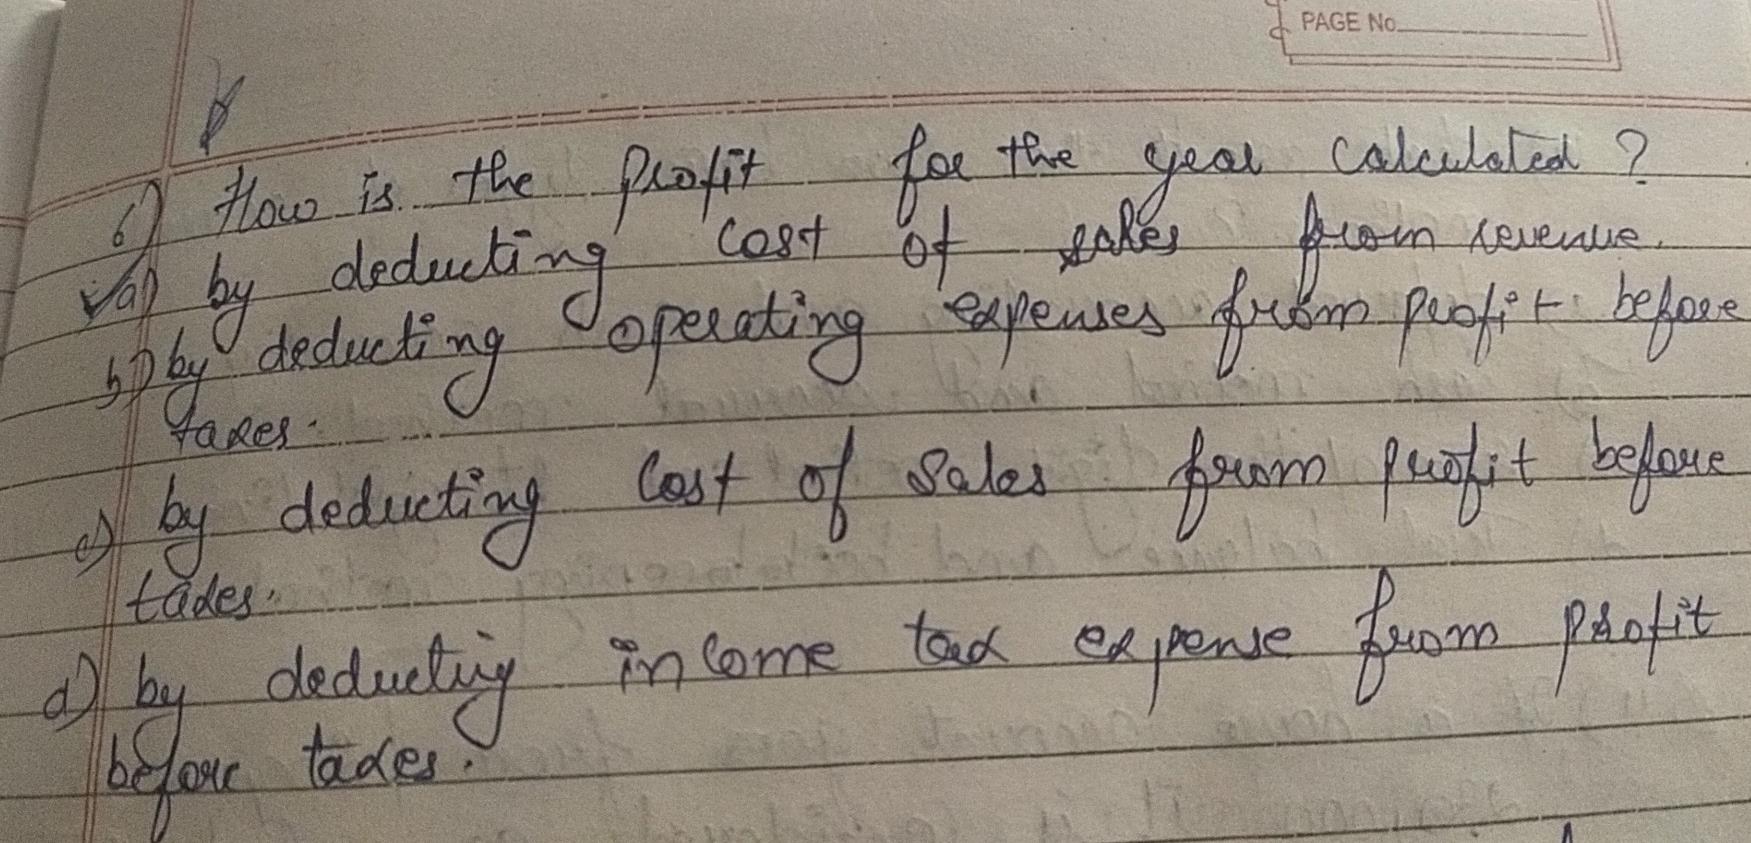 PAGE No.
6) How is the profit for the year calculated ?
✓a) by deducting cost of sales from revenue.
b) by deducting operating expenses from profit before
taxes.
c) by deducting cost of sales from profit before
taxes.
d) by deducting income tax expense from profit
before taxes.